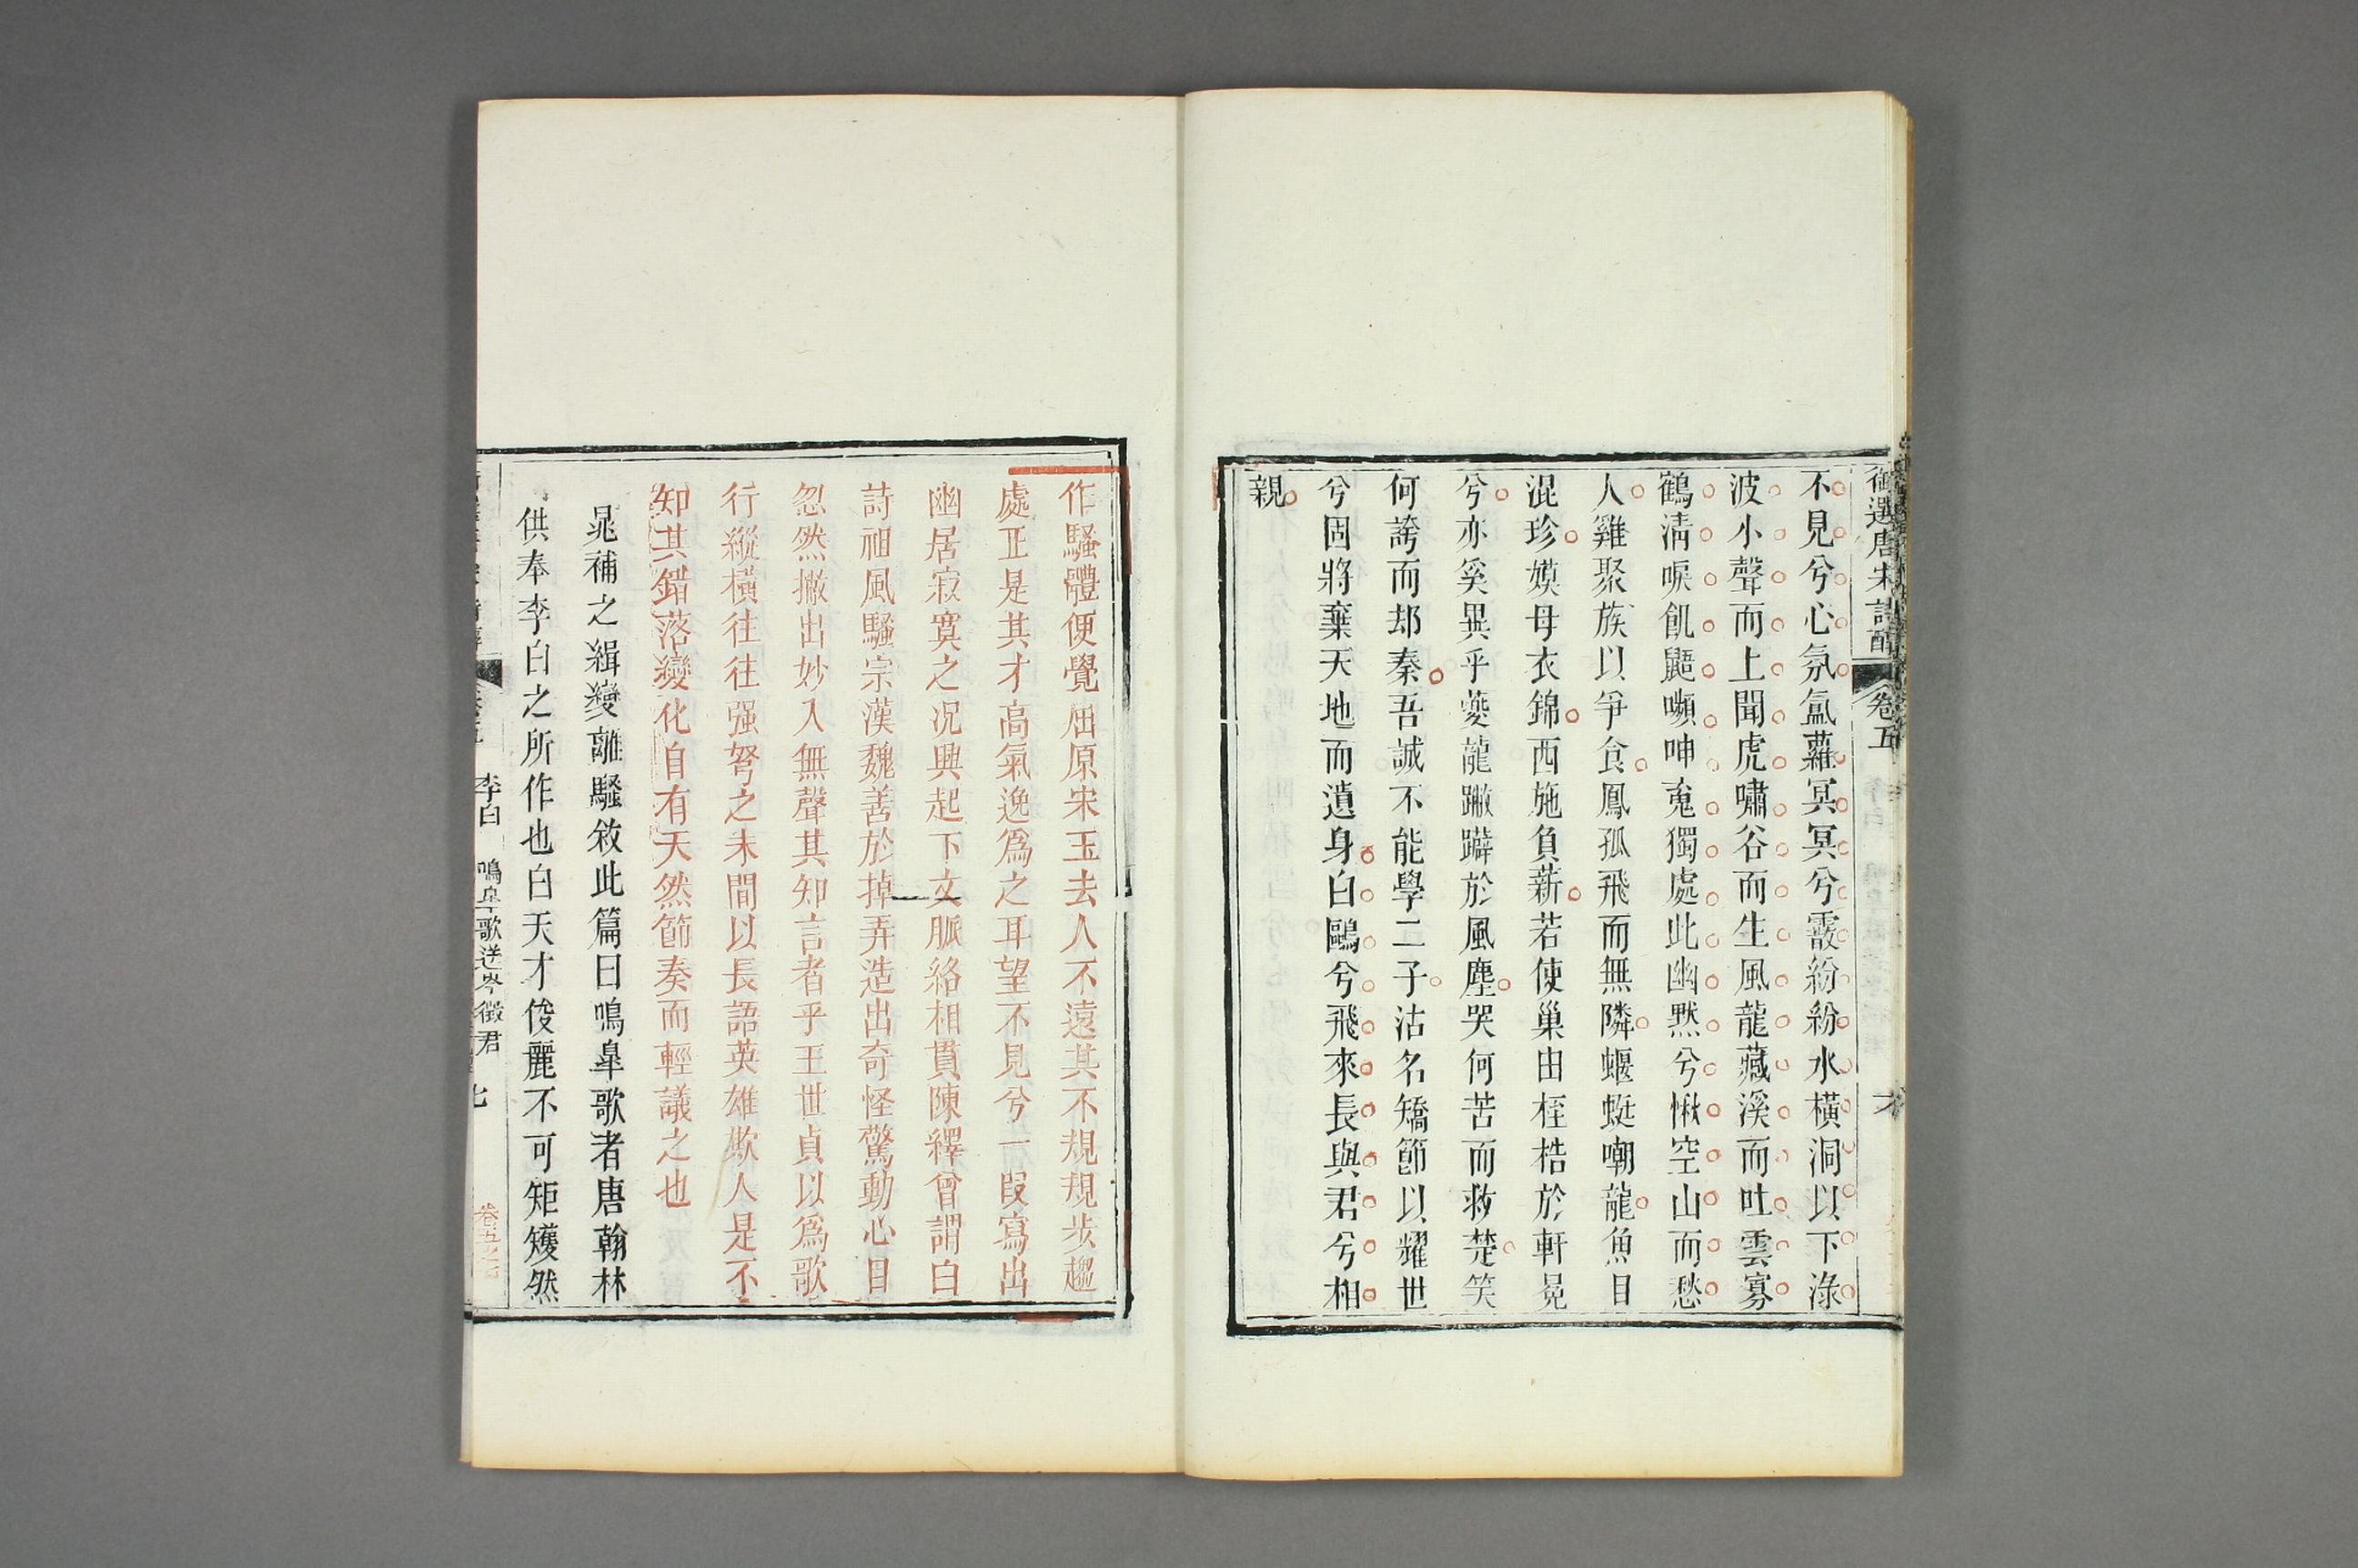 御選唐宋詩醇 卷五
不見兮心氛氳蘿冥冥兮霰紛紛水橫洞以下淥
波小聲而上聞虎嘯谷而生風龍藏溪而吐雲寡
鶴淸唳飢鼯嚬呻䰟獨處此幽黙兮愀空山而愁
人雞聚族以爭食鳳孤飛而無隣蝘蜓嘲龍魚目
混珍嫫母衣錦西施負薪若使巢由桎梏於軒冕
兮亦奚異乎夔龍蹩躠於風塵哭何苦而救楚笑
何誇而却秦吾誠不能學二子沽名矯節以耀世
兮固將棄天地而遺身白鷗兮飛來長與君兮相
親
作騷體便覺屈原宋玉去人不遠其不規規步趨
處正是其才高氣逸爲之耳望不見兮一段寫出
幽居寂寞之况興起下文脈絡相貫陳繹曾謂白
詩祖風騷宗漢魏善於掉弄造出奇怪驚動心目
忽然撇出妙入無聲其知言者乎王世貞以爲歌
行縱橫往往强弩之末間以長語英雄欺人是不
知其錯落變化自有天然節奏而輕議之也
晁補之緝變離騷敘此篇曰鳴皐歌者唐翰林
供奉李白之所作也白天才俊麗不可矩矱然
李白 鳴皐歌送岑徵君 七